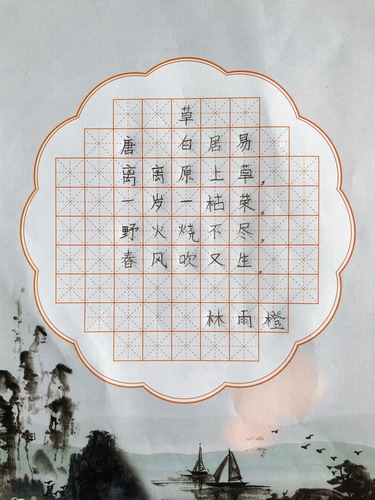 草
唐 白居易
离离原上草,
一岁一枯荣。
野火烧不尽,
春风吹又生。
林雨橙